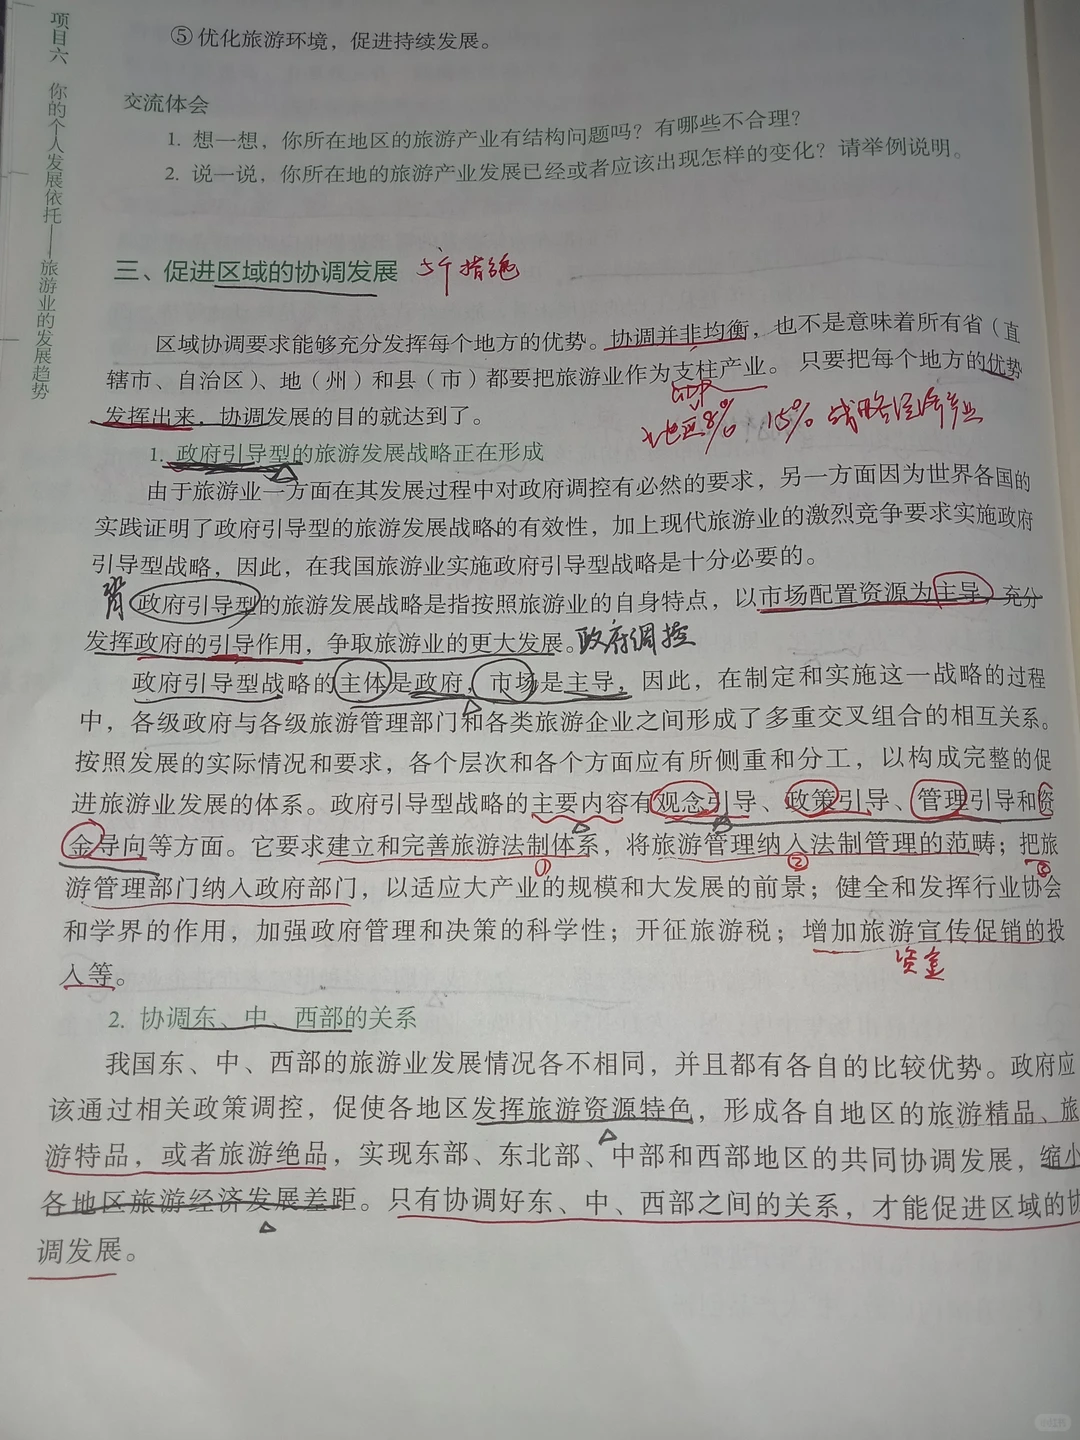 项目六 你的个人发展依托——旅游业的发展趋势
⑤ 优化旅游环境，促进持续发展。
交流体会
1. 想一想，你所在地区的旅游产业有结构问题吗？有哪些不合理？
2. 说一说，你所在地的旅游产业发展已经或者应该出现怎样的变化？请举例说明。
三、促进区域的协调发展 5个措施
区域协调要求能够充分发挥每个地方的优势。协调并非均衡，也不是意味着所有省（直
辖市、自治区）、地（州）和县（市）都要把旅游业作为支柱产业。只要把每个地方的优势
发挥出来，协调发展的目的就达到了。
地区8% 15% 战略经济产业
1. 政府引导型的旅游发展战略正在形成
由于旅游业一方面在其发展过程中对政府调控有必然的要求，另一方面因为世界各国的
实践证明了政府引导型的旅游发展战略的有效性，加上现代旅游业的激烈竞争要求实施政府
引导型战略，因此，在我国旅游业实施政府引导型战略是十分必要的。
背 政府引导型的旅游发展战略是指按照旅游业的自身特点，以市场配置资源为主导，充分
发挥政府的引导作用，争取旅游业的更大发展。政府调控
政府引导型战略的主体是政府，市场是主导，因此，在制定和实施这一战略的过程
中，各级政府与各级旅游管理部门和各类旅游企业之间形成了多重交叉组合的相互关系。
按照发展的实际情况和要求，各个层次和各个方面应有所侧重和分工，以构成完整的促
进旅游业发展的体系。政府引导型战略的主要内容有观念引导、政策引导、管理引导和资
金导向等方面。它要求建立和完善旅游法制体系，将旅游管理纳入法制管理的范畴；把旅
① ② ③
游管理部门纳入政府部门，以适应大产业的规模和大发展的前景；健全和发挥行业协会
和学界的作用，加强政府管理和决策的科学性；开征旅游税；增加旅游宣传促销的投
资金
入等。
2. 协调东、中、西部的关系
我国东、中、西部的旅游业发展情况各不相同，并且都有各自的比较优势。政府应
该通过相关政策调控，促使各地区发挥旅游资源特色，形成各自地区的旅游精品、旅
游特品，或者旅游绝品，实现东部、东北部、中部和西部地区的共同协调发展，缩小
各地区旅游经济发展差距。只有协调好东、中、西部之间的关系，才能促进区域的协
调发展。